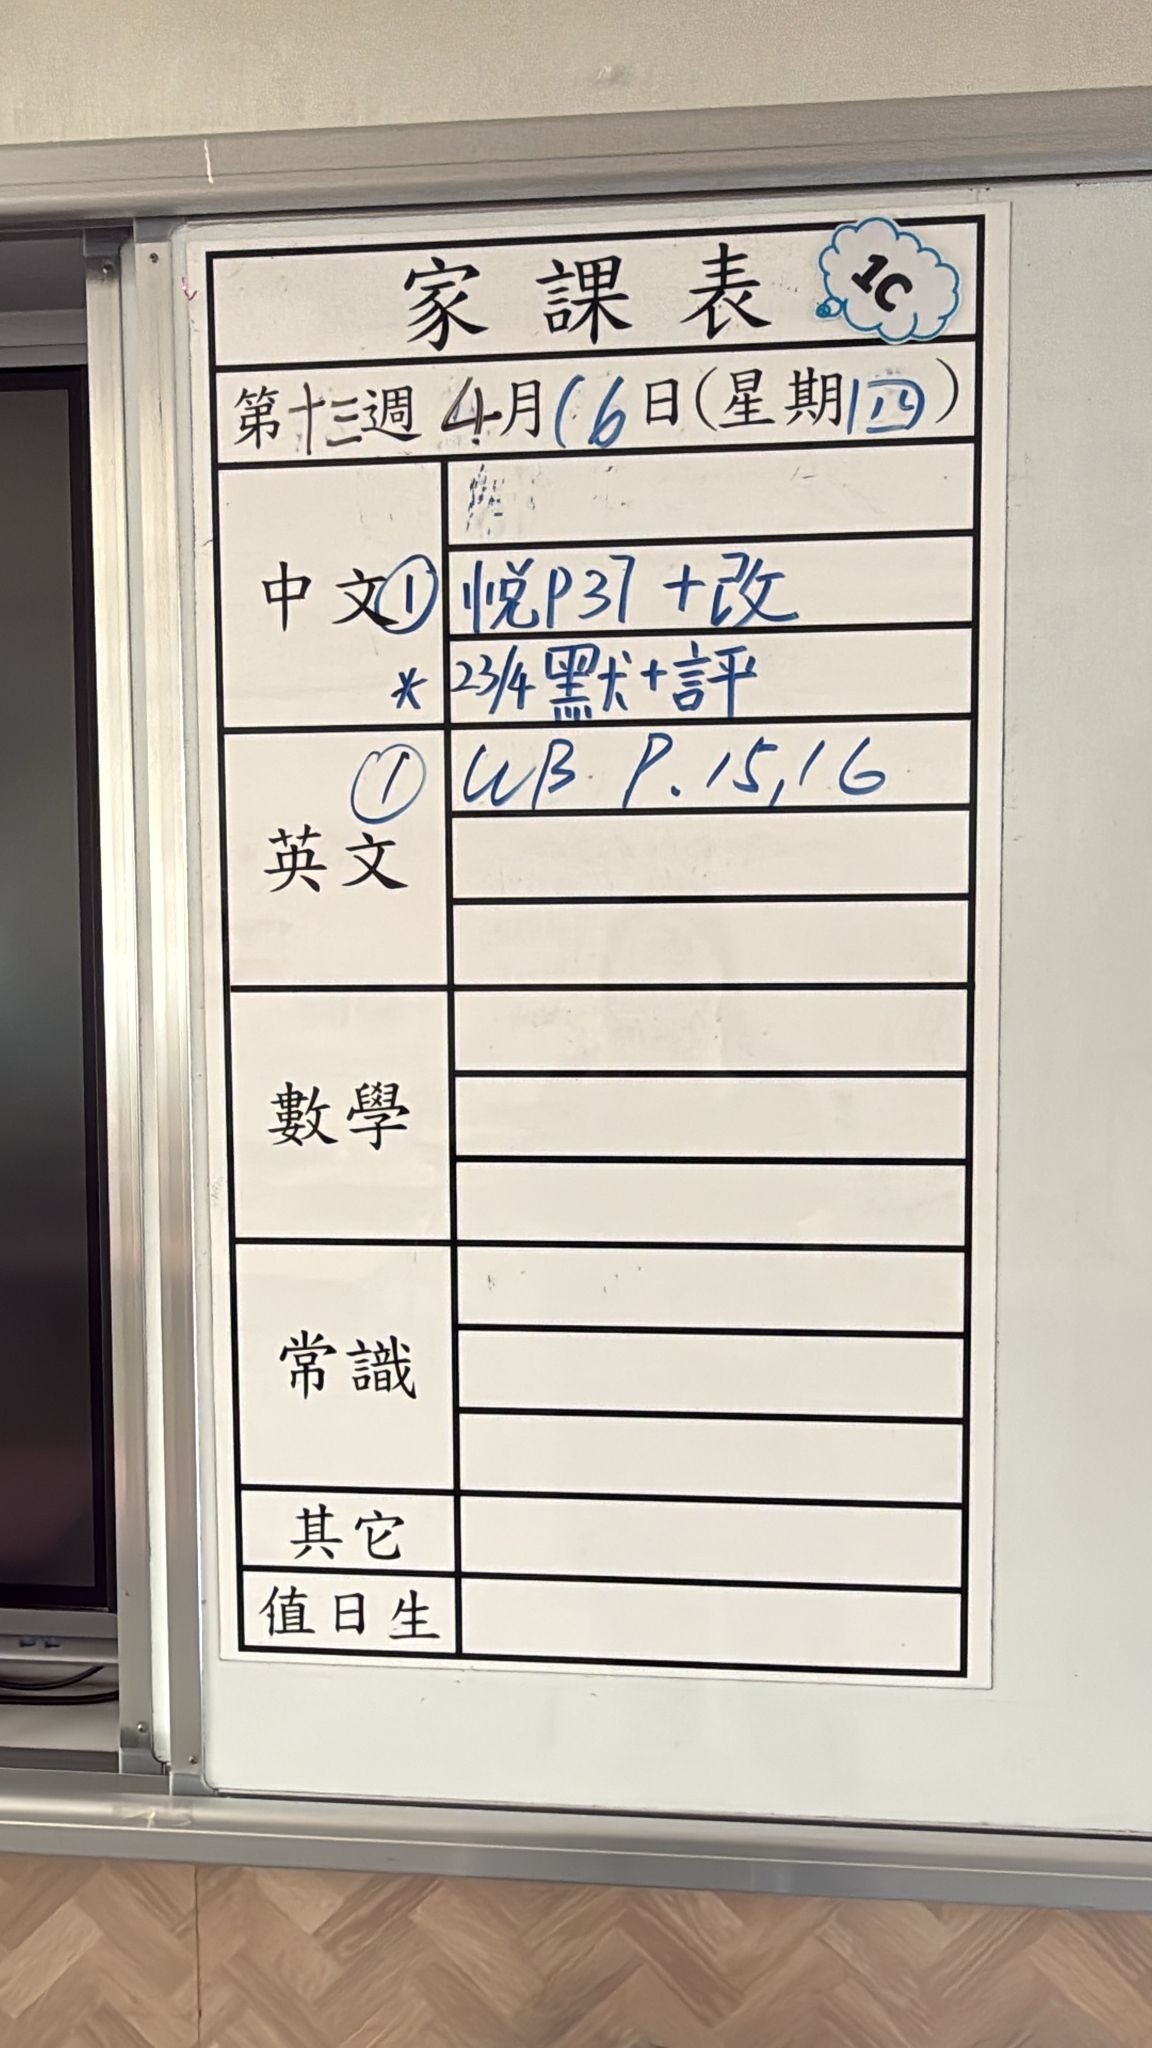 家課表 1C
第十三週 4月16日(星期四)
中文 ① 悅P37+改
* 23/4 默+評
英文 ① WB P.15,16
數學
常識
其它
值日生